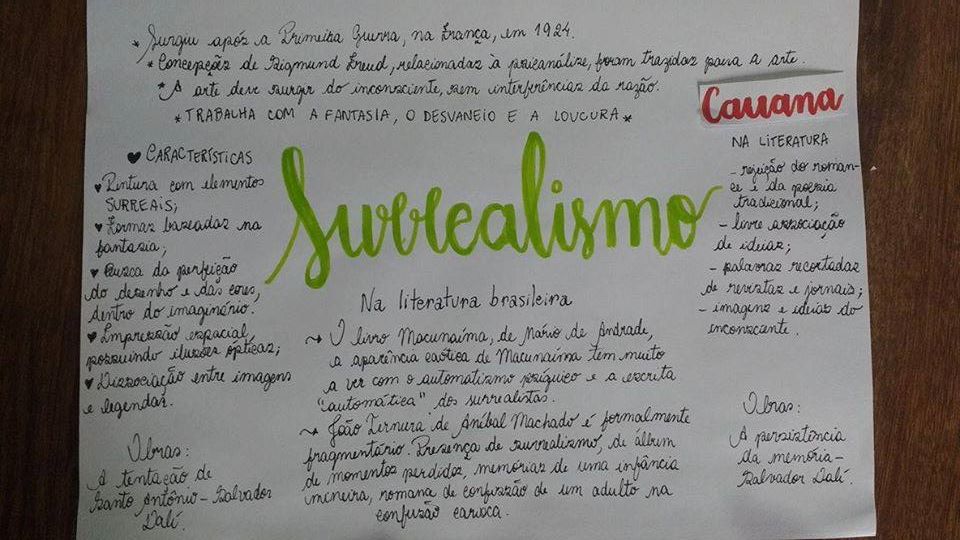 * Surgiu após a Primeira Guerra, na França, em 1924.
* Concepções de Sigmund Freud, relacionadas à psicanálise, foram trazidas para a arte.
* A arte deve surgir do inconsciente, sem interferências da razão.
* TRABALHA COM A FANTASIA, O DESVANEIO E A LOUCURA *
Cauana
♥ CARACTERÍSTICAS
♥ Pintura com elementos
SURREAIS;
♥ Formas baseadas na
fantasia;
♥ Busca da perfeição
do desenho e das cores,
dentro do imaginário.
♥ Impressão espacial,
possuindo ilusões ópticas;
♥ Dissociação entre imagens
e legendas.
Obras:
A tentação de
Santo Antônio - Salvador
Dalí.
Surrealismo
Na literatura brasileira
→ O livro Macunaíma, de Mário de Andrade,
a aparência caótica de Macunaíma tem muito
a ver com o automatismo psíquico e a escrita
"automática" dos surrealistas.
→ João Ternura de Aníbal Machado é formalmente
fragmentário. Presença de surrealismo, de álbum
de momentos perdidos, memórias de uma infância
mineira, romana de confussão de um adulto na
confusão carioca.
NA LITERATURA
- rejeição do roman-
ce e da poesia
tradicional;
- livre associação
de ideias;
- palavras recortadas
de revistas e jornais;
- imagens e ideias do
inconsciente.
Obras:
A persistência
da memória -
Salvador Dalí.